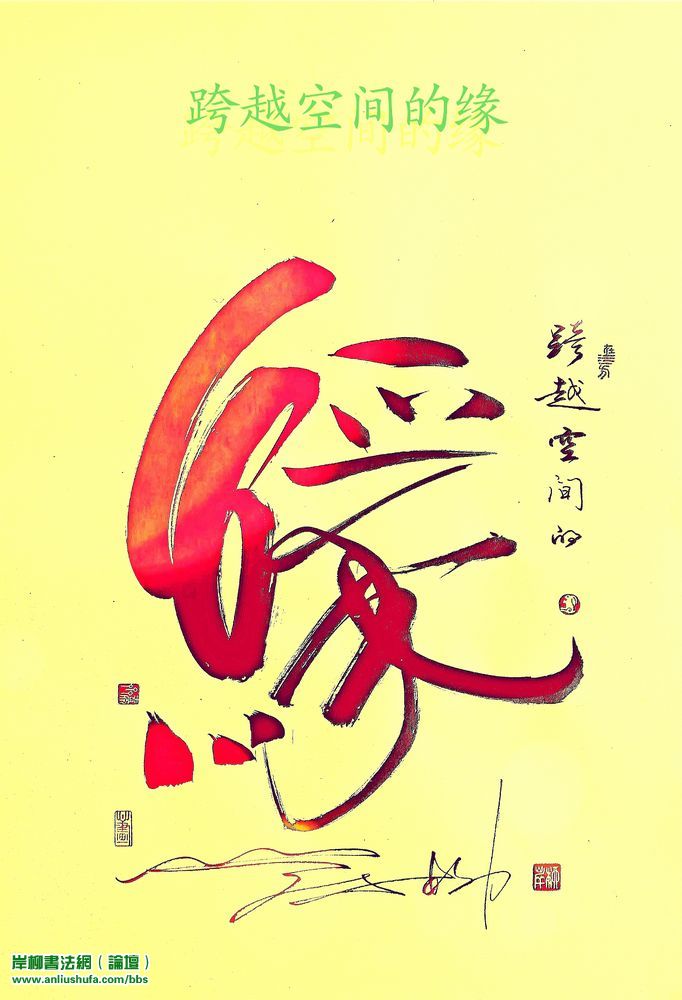 跨越空间的缘
跨越空间的缘
緣
跨越空間的
岸柳書法網（論壇）
www.anliushufa.com/bbs